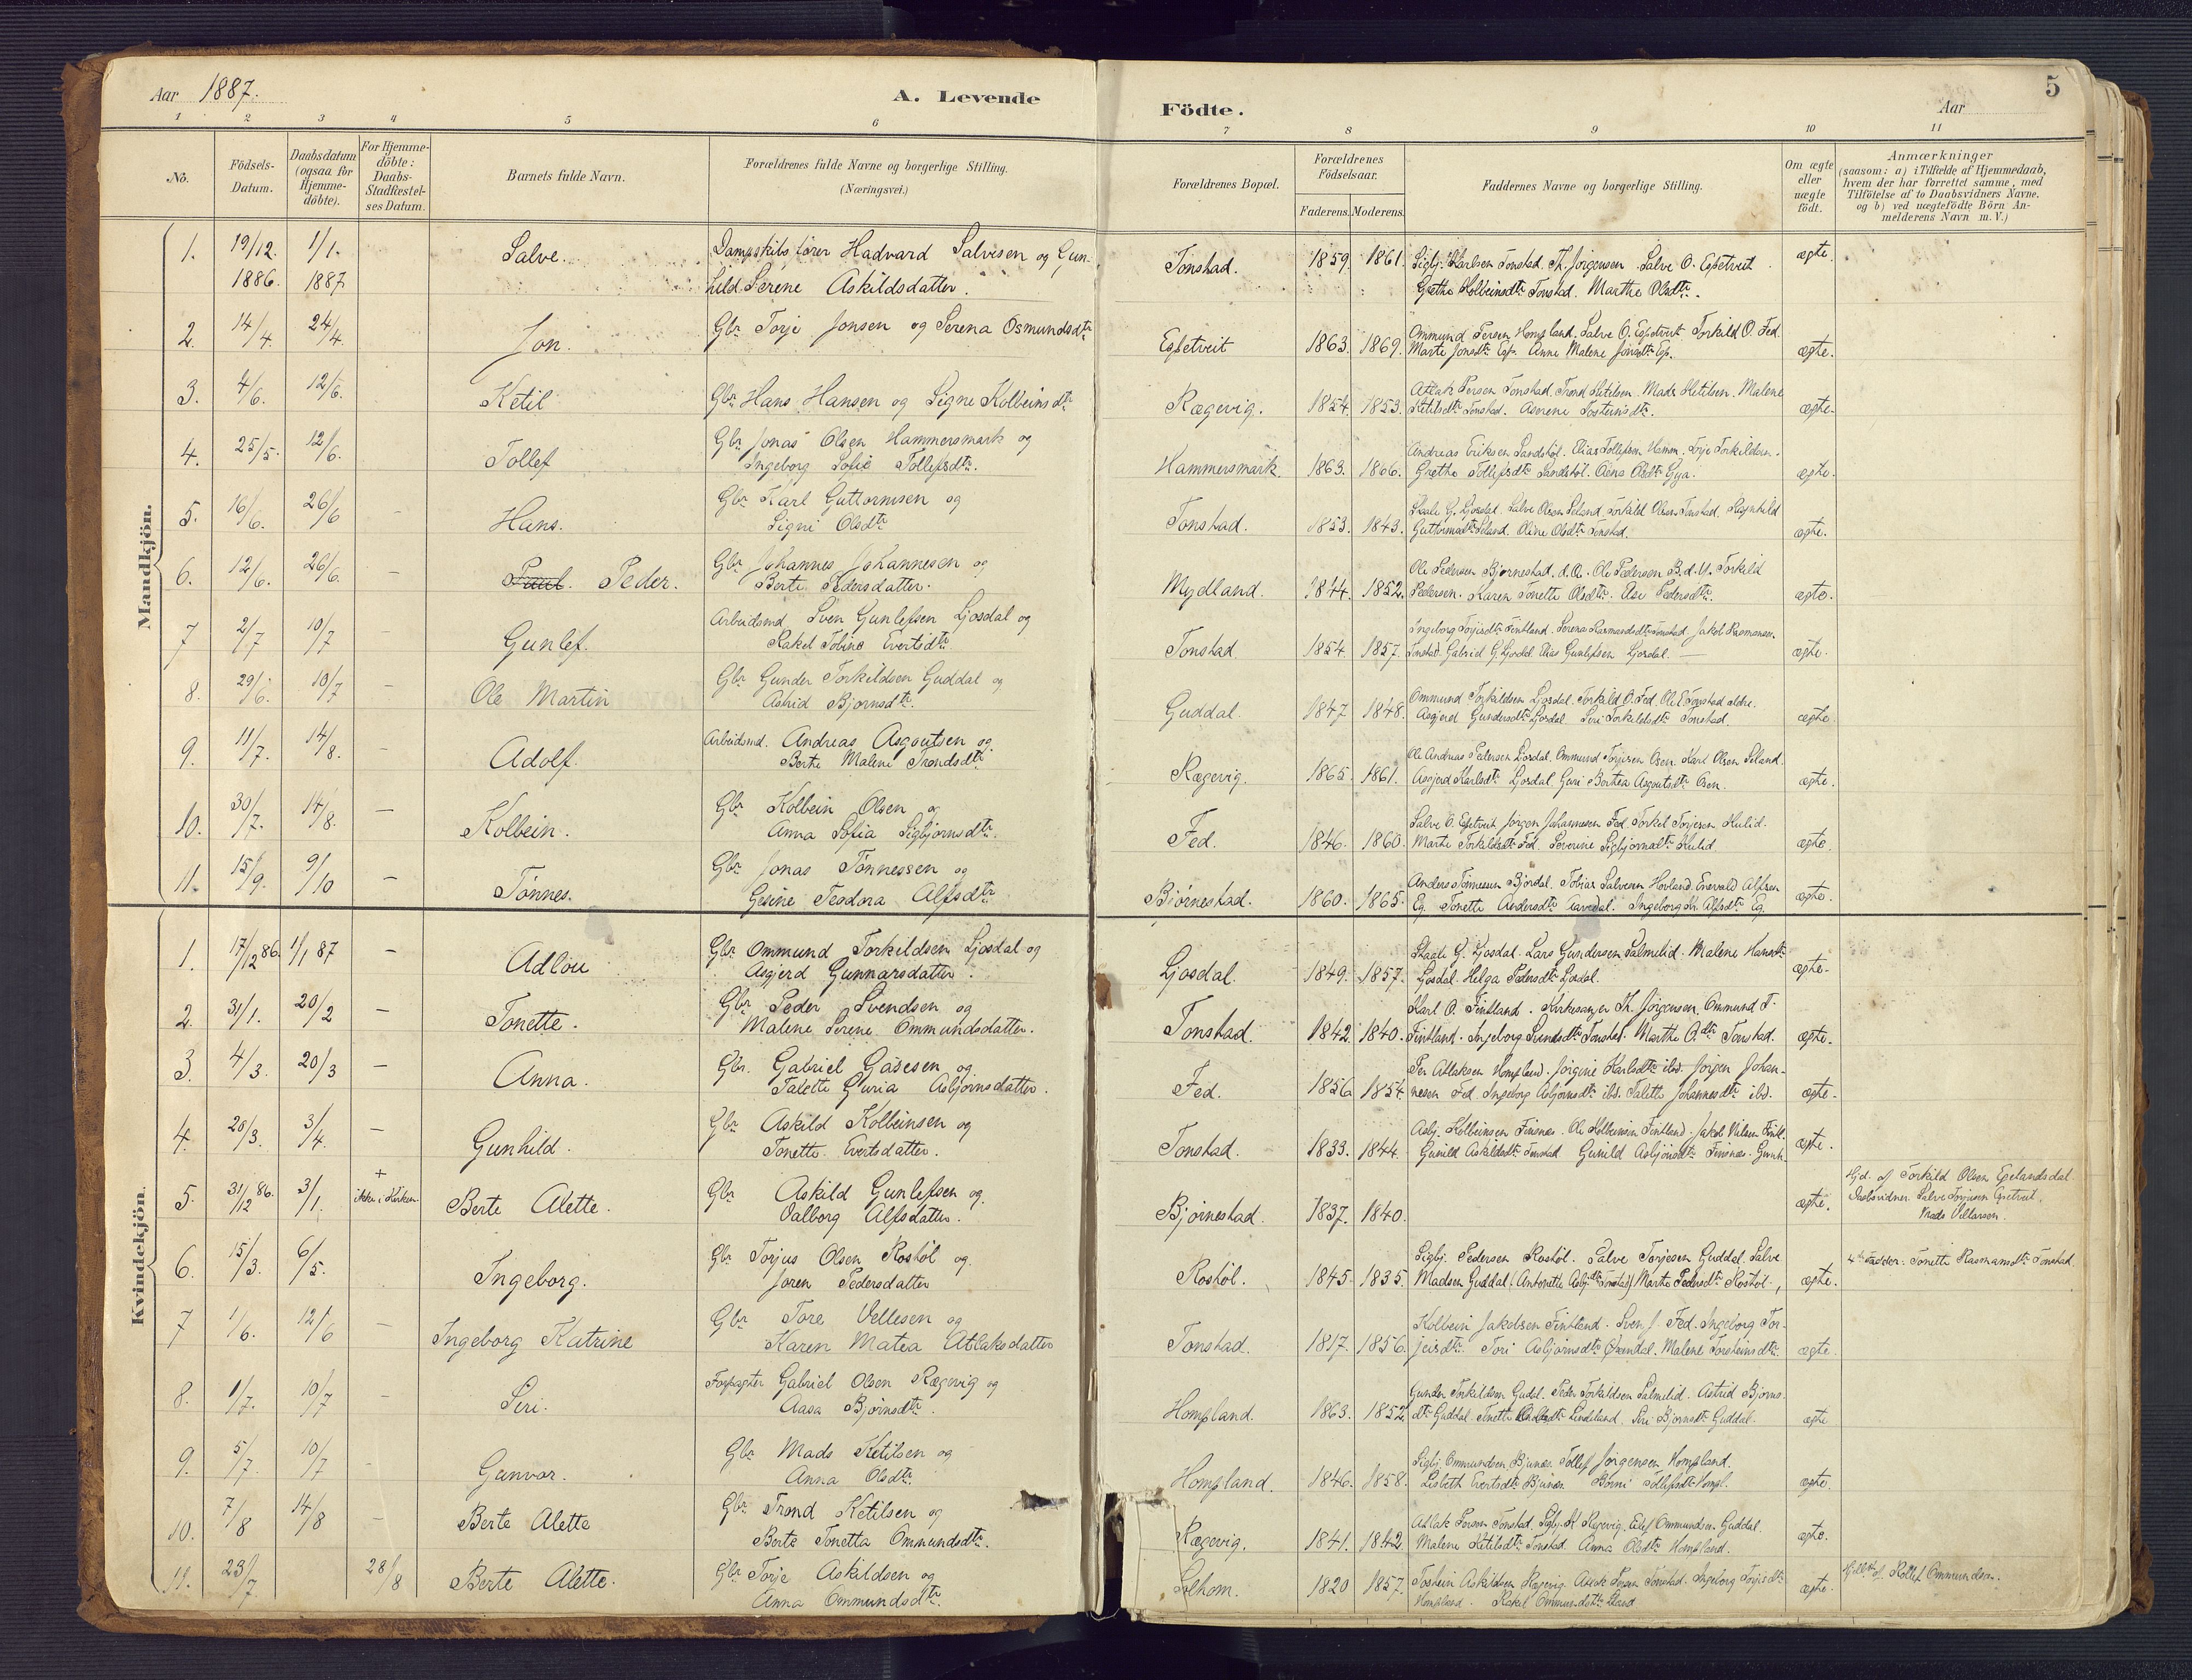 Aar 1887.
A. Levende
Födte.
Aar
5
1 2 3 4 5 6 7 8 9 10 11
No.
Födsels-Datum.
Daabsdatum (ogsaa for Hjemme-döbte).
For Hjemme-döbte: Daabs-Stadfæstel-ses Datum.
Barnets fulde Navn.
Forældrenes fulde Navne og borgerlige Stilling.
(Næringsvei.)
Forældrenes Bopæl.
Forældrenes Födselsaar.
Faderens. Moderens.
Faddernes Navne og borgerlige Stilling.
Om ægte eller uægte födt.
Anmærkninger
(saasom: a) i Tilfælde af Hjemmedaab,
hvem der har forrettet samme, med
Tilföielse af to Daabsvidners Navne.
og b) ved uægtefödte Börn An-
melderens Navn m. V.)
Mandkjön.
1. 19/12. 1/1. Salve. Dampskibsfører Hadvard Salvesen og Gun- Tonstad. 1859. 1861. Sigbj. Karlsen Tonstad. Th. Jörgensen. Salve O. Espetveit. ægte.
1886. 1887 hild Serene Askildsdatter. Grethe Kolbeinsdtr Tonstad. Marthe Olsdtr.
2. 14/4. 24/4. Jon. Gbr Torje Jonsen og Serena Osmundsdtr Espetveit 1863. 1869. Ommund Persen Hompland. Salve O. Espetveit Torkild O. Fed.
Marte Jonsdtr Esp. Anne Malene Jonsdtr Esp. ægte.
3. 4/6. 12/6. Ketil Gbr Hans Hansen og Signe Kolbeinsdtr Rægevig. 1854. 1853. Atlak Persen Tonstad. Trond Ketilsen. Mads Ketilsen. Malene
Ketilsdtr Tonstad. Aserene Tosteinsdtr. ægte.
4. 25/5. 12/6. Tollef Gbr Jonas Olsen Hammersmark og Hammersmark. 1863. 1866. Andreas Eriksen Sandstöl. Elias Tollefsen Hamm. Torje Torkildsen.
Ingeborg Sofie Tollefsdtr. Grethe Tollefsdtr Sandstöl. Olsdtr Gya. ægte.
5. 16/6. 26/6 - Hans. Gbr Karl Guttormsen og Tonstad. 1853. 1843. Staale G. Ljosdal. Salve Olsen Seland. Torkild Olsen Tonstad. Ragnhild
Signi Olsdtr Guttormsdtr Seland. Oline Olsdtr Tonstad. ægte.
6. 12/6. 26/6. - Paul. Peder. Gbr Johannes Johannesen og Mydland. 1844. 1852. Ole Pedersen Bjornestad. d.Æ. Ole Pedersen B. d.Y. Torkild
Berte Pedersdatter. Pedersen. Karen Tonette Olsdtr. Pedersdtr. ægte.
7 2/7 10/7 - Gunlef. Arbeidsmd. Sven Gunlefsen Ljosdal og Tonstad. 1854. 1857. Ingeborg Torjisdtr Fintland. Serena Rasmusdtr Tonstad. Jakob Rasmussen
Rakel Tobine Evertsdtr. Tonstad. Gabriel G. Ljosdal. Elias Gunlefsen Ljosdal. — ægte.
8. 29/6. 10/7 - Ole Martin Gbr Gunder Torkildsen Guddal og Guddal. 1847 1848. Ommund Torkildsen Ljosdal. Torkild O. Fed. Ole E. Tonstad ældre.
Astrid Bjornsdtr. Asgjerd Gundersdtr Ljosdal Siri Torkildsdtr Tonstad. ægte.
9. 11/7. 14/8. - Adolf. Arbeidsmd. Andreas Asgoutsen og Rægevig. 1865. 1861. Ole Andreas Pedersen Ljosdal. Ommund Torjesen Osen. Karl Olsen Seland.
Berte Malene Trondsdtr Asgjerd Karlsdtr Ljosdal Guri Berthea Asgoutsdtr Osen. ægte.
10. 30/7. 14/8. - Kolbein. Gbr Kolbein Olsen og Fed. 1846. 1860. Salve O. Espetveit Jörgen Johannesen Fed. Torkel Torjesen Hulid.
Anna Sofia Sigbjornsdtr. Marte Torkildsdtr Fed. Severine Sigbjornsdtr Hulid ægte.
11. 15/9. 9/10 - Tönnes. Gbr Jonas Tönnessen og Björnestad. 1860. 1865. Anders Tönnessen Bjordal. Tobias Salvesen Hovland. Enevald Alfsen
Gesine Teodora Alfsdtr Eg. Tonette Andersdtr. Ingeborg Alfsdtr Eg. ægte.
Kvindekjön.
1. 17/12 86. 1/1 87 - Adlou Gbr Ommund Torkildsen Ljosdal og Ljosdal. 1849. 1857. Staale G. Ljosdal. Lars Gundersen Salmelid. Malene Hansdtr
Asgjerd Gunnarsdatter. Ljosdal. Helga Pedersdtr Ljosdal. ægte.
2. 31/1. 20/2 - Tonette. Gbr Peder Svendsen og Tonstad. 1842. 1840. Karl O. Fintland. Kirkesanger Th. Jörgensen. Ommund T.
Malene Serene Ommundsdatter. Fintland. Ingeborg Svendsdtr Tonstad. Marthe O.dtr Tonstad. ægte.
3. 4/3. 20/3 - Anna. Gbr. Gabriel Gasesen og Fed. 1856 1854. Per Atlaksen Hompland. Jörgine Karlsdtr ibd. Jörgen Johan-
Talette Guria Asbjornsdatter. nesen Fed. Ingeborg Asbjornsdtr ibd. Talette Johannesdtr ibd. ægte.
4. 26/3. 3/4. - Gunhild. Gbr Askild Kolbeinsen og Tonstad. 1833. 1844. Asbj. Kolbeinsen Finsnæs. Ole Kolbeinsen Fintland. Jakob Nilsen Fintl.
Tonette Evertsdatter. Gunild Askildsdtr Tonstad Gunild Asbjörnsdtr Finsnæs. ægte.
5. 31/12 86. 3/1. + ikke i Kirken. Berte Alette. Gbr Askild Gunlefsen og Bjornestad. 1837. 1840. ægte. Hjd. af Torkild Olsen Egelandsdal.
Valborg Alfsdatter. Daabsvidner Salve Torjusen Espetveit.
Mads Vellarsen.
6. 15/3. 6/5. Ingeborg. Gbr Torjus Olsen Rostöl og Rostöl. 1845. 1835. Sigbj. Pedersen Rostöl. Salve Torjesen Guddal. Salve
Joren Pedersdatter Madsen Guddal. (Anborette Asbj.dtr Tonstad) Marte Pedersdtr Rostöl. ægte. 4de Fadder: Tonette Rasmusdtr Tonstad.
7 1/6. 12/6 - Ingeborg Katrine Gbr Tore Vellesen og Tonstad. 1817. 1856. Kolbein Jakobsen Fintland. Sven J. Fed. Ingeborg Tor-
Karen Matea Atlaksdatter jeisdtr. Tori Asbjornsdtr Öxendal. Malene Torsteinsdtr. ægte.
8. 1/7. 10/7 - Siri. Forpagter Gabriel Olsen Rægevig og Hompland. 1863. 1852. Gunder Torkildsen Gudal. Peder Torkildsen Salmelid. Astrid Bjorns-
Aasa Björnsdtr. dtr Guddal. Tonette Lindeland. Siri Bjornsdtr Guddal. ægte
9. 5/7. 10/7 - Gunvor. Gbr Mads Ketilsen og Hompland. 1846. 1858. Sigbj. Ommundsen Bjunæs. Tollef Jörgensen Hompland.
Anna Olsdtr. Lisbeth Evertsdtr Bjunæs Tollefsdtr Hompl. ægte.
10. 7/8 14/8 - Berte Alette Gbr Trond Ketilsen og Rægevig. 1841. 1842. Atlak Persen Tonstad. Sigbj. H. Rægevig. Eilef Ommundsen Guddal.
Berte Tonetta Ommundsdtr. Malene Ketilsdtr Tonstad Anna Olsdtr Hompland. ægte.
11. 23/7 28/8 Berte Alette. Gbr Torje Askildsen og Solhom. 1820 1857. Tostein Askildsen Rægevig. Atlak Persen Tonstad. Ingeborg Torjesdtr
Anna Ommundsdtr. Hompland. Rakel Ommundsdtr ægte. Kollef Ommundsen.